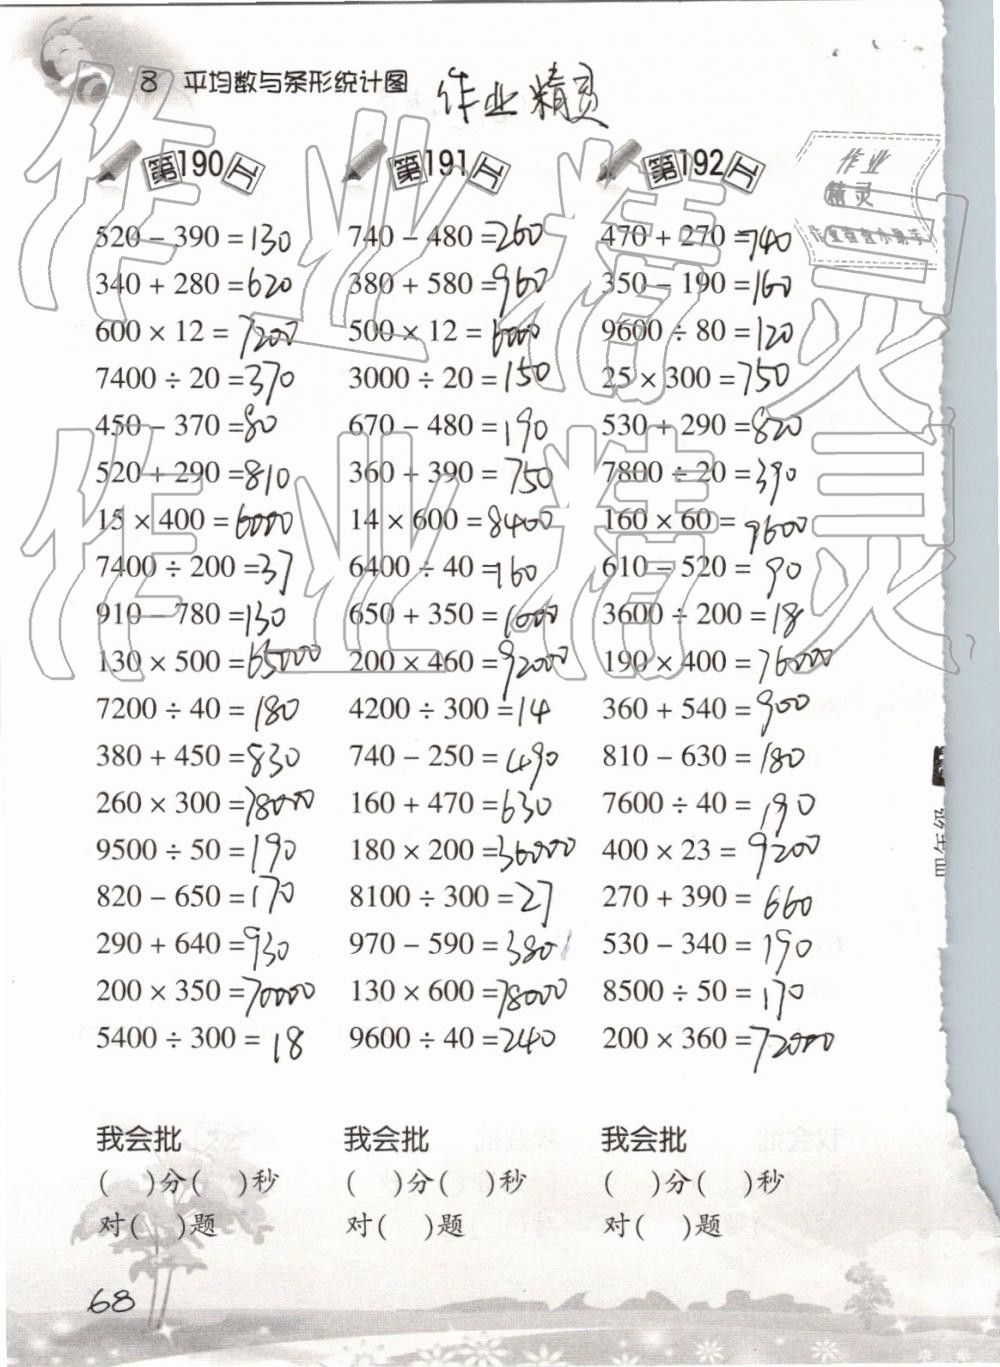 8 平均数与条形统计图 作业精灵
作业
精灵
第190工 第191工 第192工
520 − 390 = 130 740 − 480 = 260 470 + 270 = 740
340 + 280 = 620 380 + 580 = 960 350 − 190 = 160
600 × 12 = 7200 500 × 12 = 6000 9600 ÷ 80 = 120
7400 ÷ 20 = 370 3000 ÷ 20 = 150 25 × 300 = 750
450 − 370 = 80 670 − 480 = 190 530 + 290 = 820
520 + 290 = 810 360 + 390 = 750 7800 ÷ 20 = 390
15 × 400 = 6000 14 × 600 = 8400 160 × 60 = 9600
7400 ÷ 200 = 37 6400 ÷ 40 = 160 610 − 520 = 90
910 − 780 = 130 650 + 350 = 1000 3600 ÷ 200 = 18
130 × 500 = 65000 200 × 460 = 92000 190 × 400 = 76000
7200 ÷ 40 = 180 4200 ÷ 300 = 14 360 + 540 = 900
380 + 450 = 830 740 − 250 = 490 810 − 630 = 180
260 × 300 = 78000 160 + 470 = 630 7600 ÷ 40 = 190
9500 ÷ 50 = 190 180 × 200 = 36000 400 × 23 = 9200
820 − 650 = 170 8100 ÷ 300 = 27 270 + 390 = 660
290 + 640 = 930 970 − 590 = 380 530 − 340 = 190
200 × 350 = 70000 130 × 600 = 78000 8500 ÷ 50 = 170
5400 ÷ 300 = 18 9600 ÷ 40 = 240 200 × 360 = 72000
我会批 我会批 我会批
( )分( )秒 ( )分( )秒 ( )分( )秒
对( )题 对( )题 对( )题
68
四年级
作业精灵
作业精灵